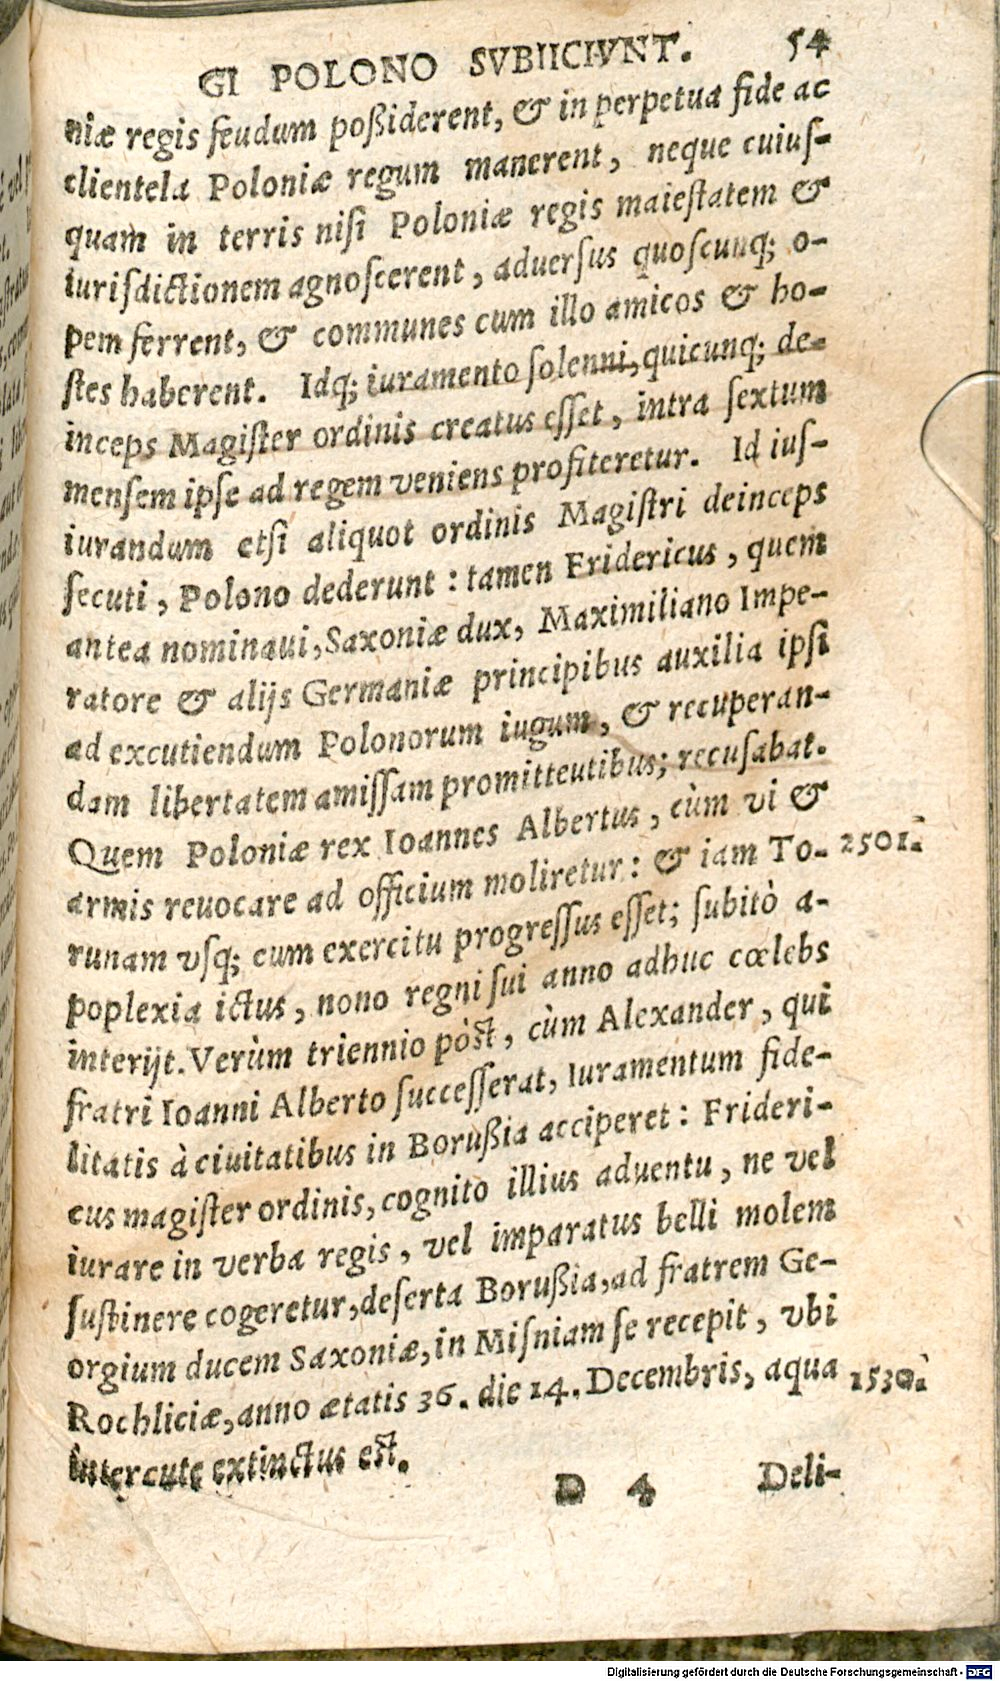 GI POLONO SVBIICIVNT. 54
niæ regis feudum poßiderent, & in perpetua fide ac
clientela Poloniæ regum manerent, neque cuiuſ-
quàm in terris niſi Poloniæ regis maieſtatem &
iurisdictionem agnoſcerent, aduerſus quoſcunq; o-
pem ferrent, & communes cum illo amicos & ho-
ſtes haberent. Idq; iuramento ſolenni, quicunq; de-
inceps Magiſter ordinis creatus eſſet, intra ſextum
menſem ipſe ad regem veniens profiteretur. Id iuſ-
iurandum etſi aliquot ordinis Magiſtri deinceps
ſecuti, Polono dederunt: tamen Fridericus, quem
antea nominaui, Saxoniæ dux, Maximiliano Impe-
ratore & alijs Germaniæ principibus auxilia ipſi
ad excutiendum Polonorum iugum, & recuperan-
dam libertatem amiſſam promitteutibus; recuſabat.
Quem Poloniæ rex Ioannes Albertus, cùm vi &
armis reuocare ad officium moliretur: & iam To- 2501.
runam vſq; cum exercitu progreſſus eſſet; ſubitò a-
poplexia ictus, nono regni ſui anno adhuc cœlebs
interijt. Verùm triennio pòſt, cùm Alexander, qui
fratri Ioanni Alberto ſucceſſerat, iuramentum fide-
litatis à ciuitatibus in Borußia acciperet: Frideri-
cus magiſter ordinis, cognito illius aduentu, ne vel
iurare in verba regis, vel imparatus belli molem
ſuſtinere cogeretur, deſerta Borußia, ad fratrem Ge-
orgium ducem Saxoniæ, in Miſniam ſe recepit, vbi
Rochliciæ, anno ætatis 36. die 14. Decembris, aqua 1530.
intercute extinctus eſt.
D 4 Deli-
Digitalisierung gefördert durch die Deutsche Forschungsgemeinschaft - DFG